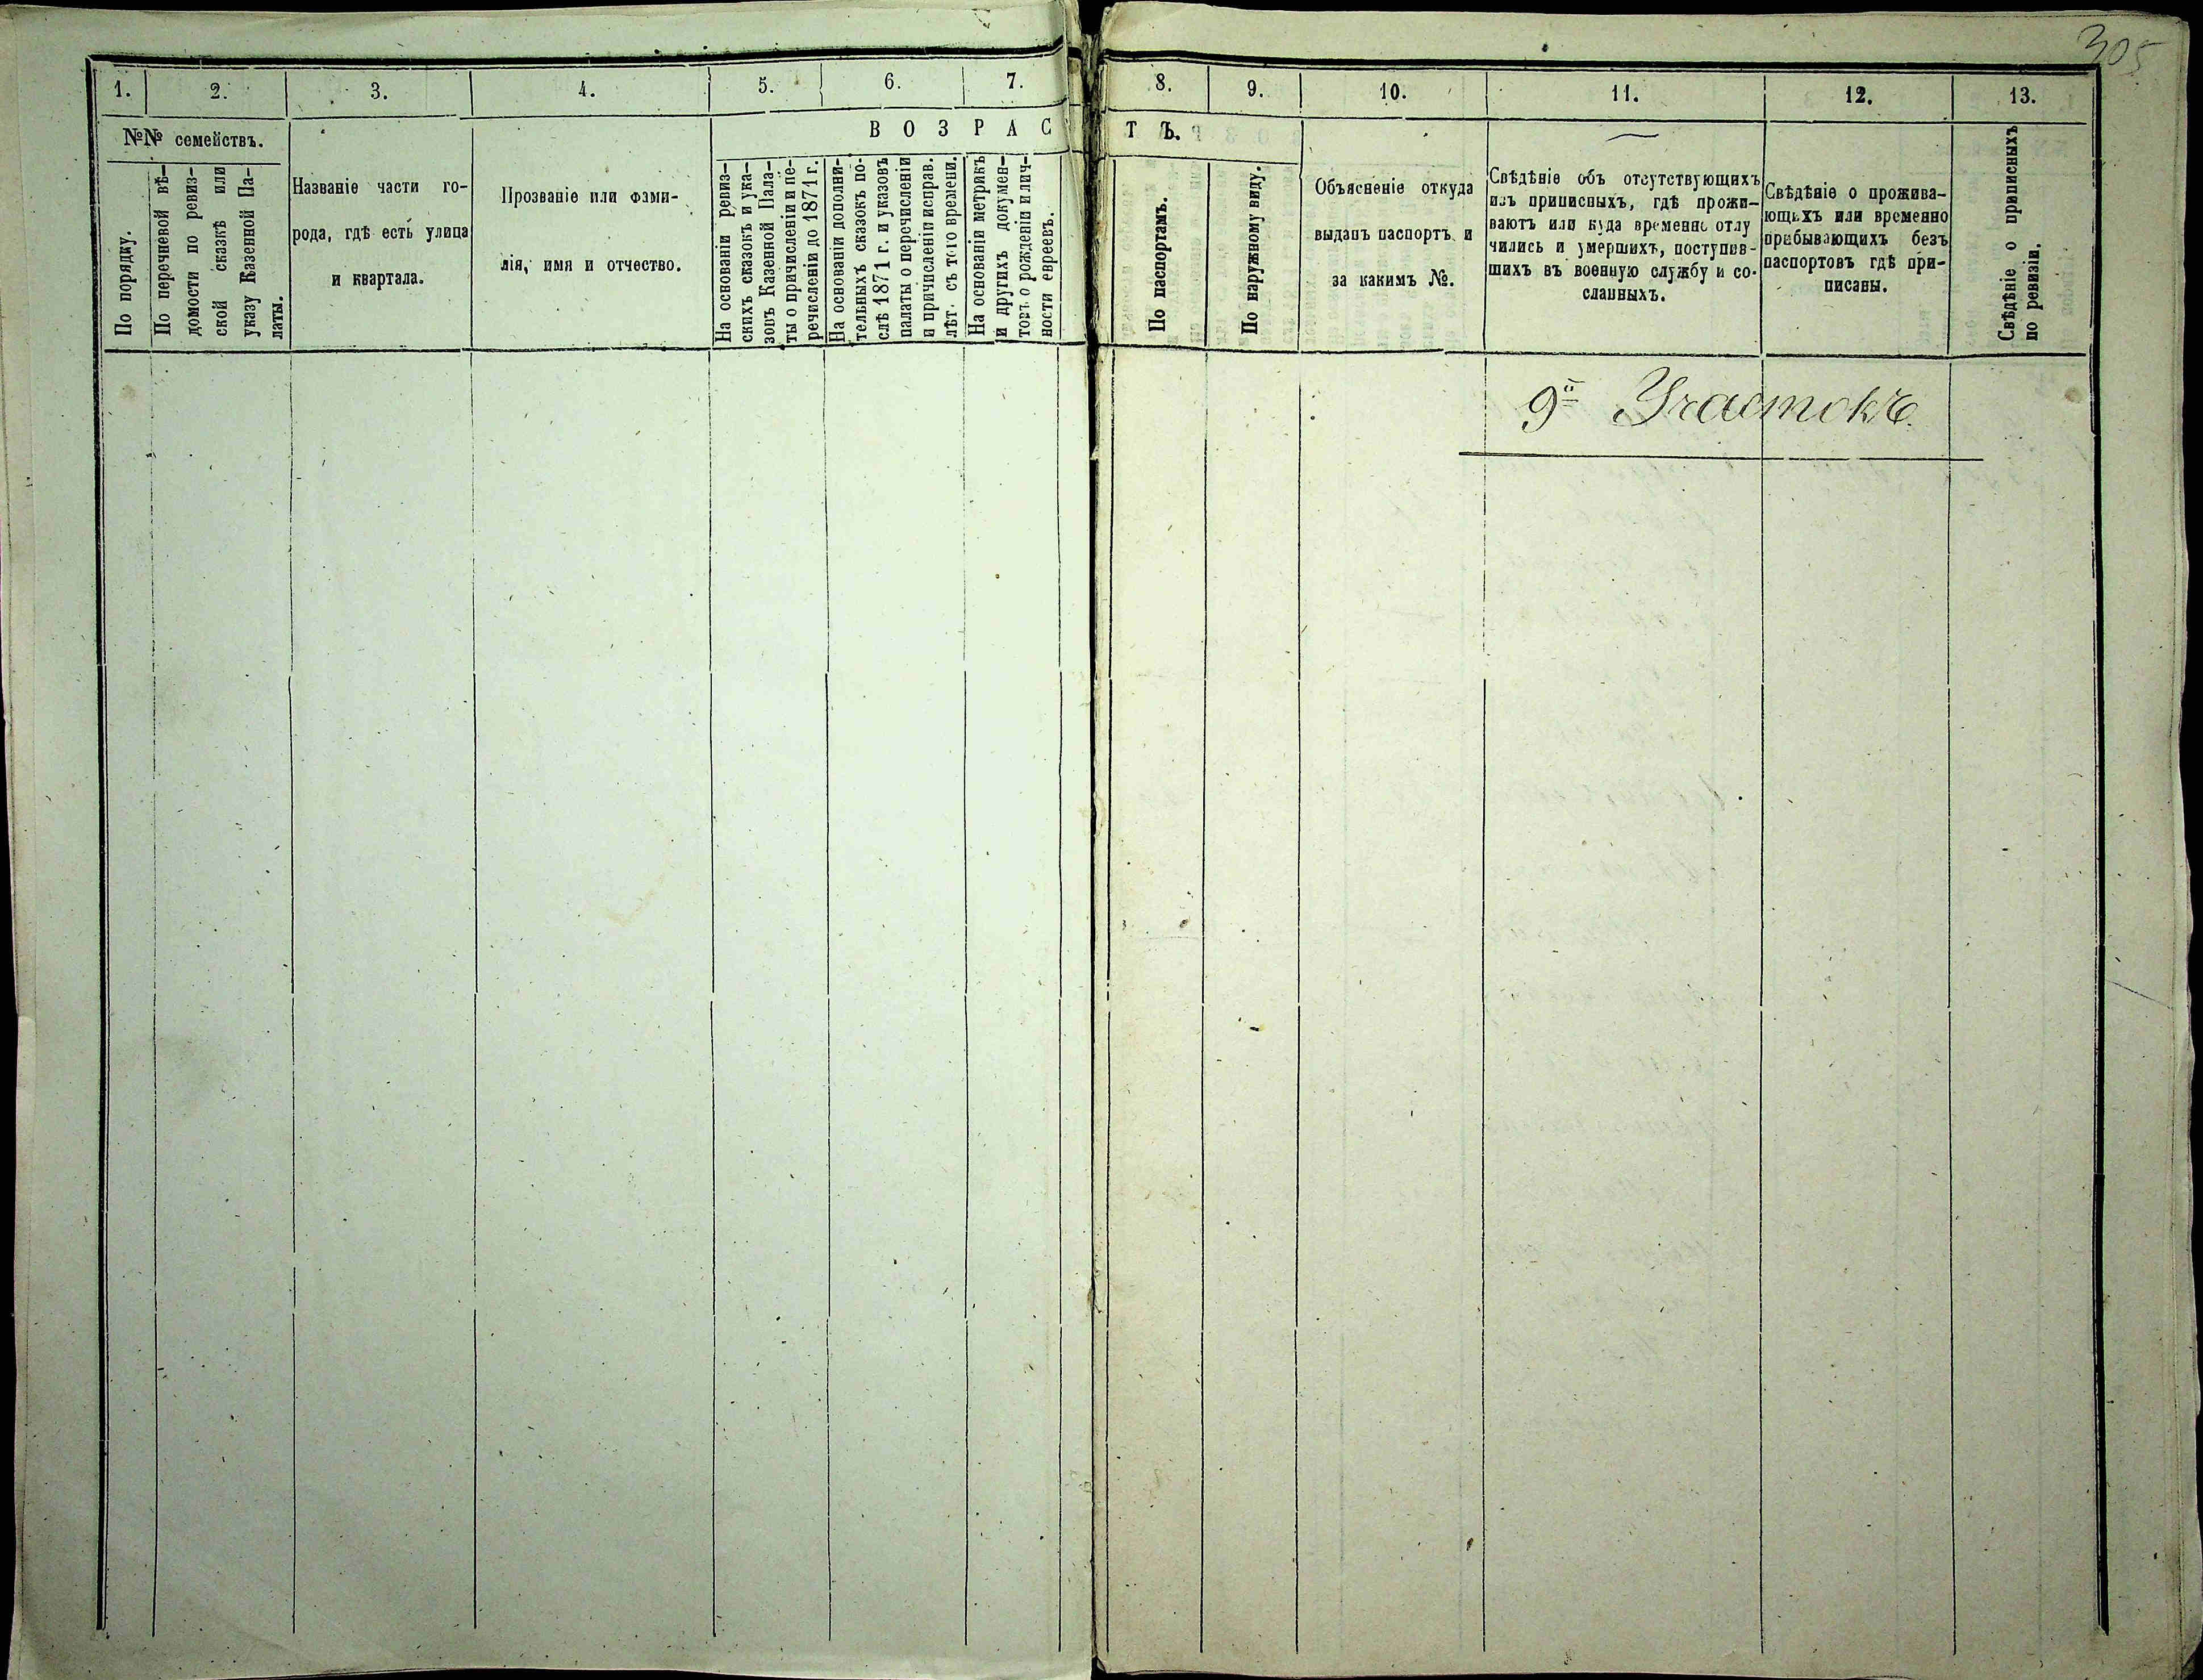 305
1.
2.
3.
4.
5.
6.
7.
8.
9.
10.
11.
12.
13.
№№ семействъ.
По порядку.
По перечневой вѣ-
домости по ревиз-
ской сказкѣ или
указу Казенной Па-
латы.
Названіе части го-
рода, гдѣ есть улица
и квартала.
Прозваніе или фами-
лія, имя и отчество.
В О З Р А С Т Ъ.
На основаніи ревиз-
скихъ сказокъ и ука-
зовъ Казенной Пала-
ты о причисленіи и пе-
речисленіи до 1871 г.
На основаніи дополни-
тельныхъ сказокъ по-
слѣ 1871 г. и указовъ
палаты о перечисленіи
и причисленіи исправ.
лѣт. съ того времени.
На основаніи метрикъ
и другихъ докумен-
товъ о рожденіи и лич-
ности евреевъ.
По паспортамъ.
По наружному виду.
Объясненіе откуда
выданъ паспортъ и
за какимъ №.
Свѣдѣніе объ отсутствующихъ
изъ приписныхъ, гдѣ прожи-
ваютъ или куда временно отлу
чились и умершихъ, поступив-
шихъ въ военную службу и со-
сланныхъ.
Свѣдѣніе о прожива-
ющихъ или временно
пребывающихъ безъ
паспортовъ гдѣ при-
писаны.
Свѣдѣніе о приписныхъ
по ревизіи.
9й Участокъ.